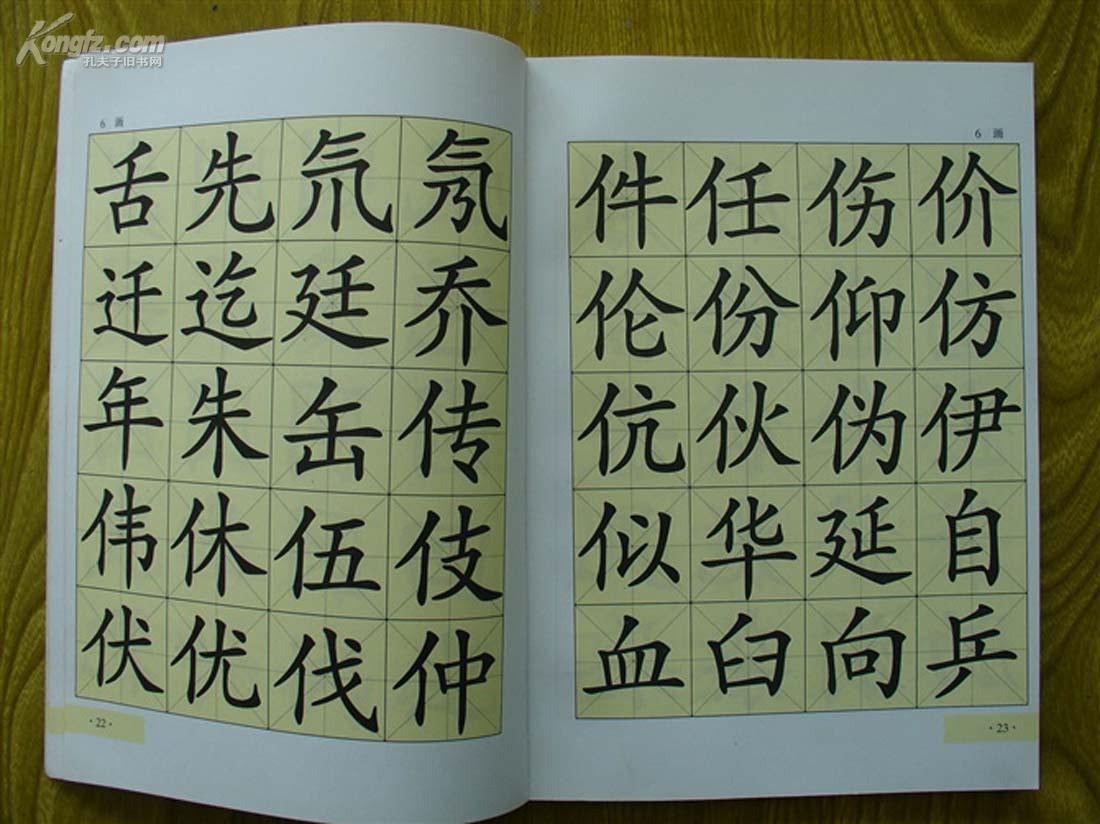 Kongfz.com
孔夫子旧书网
6 画
舌先氘氖
迁迄廷乔
年朱缶传
伟休伍伎
伏优伐仲
·22·
6 画
件任伤价
伦份仰仿
伉伙伪伊
似华延自
血臼向乒
·23·